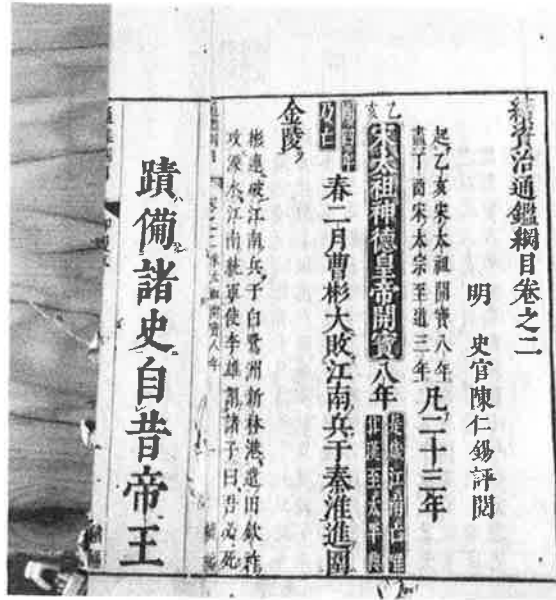 續資治通鑑綱目卷之二
明 史官陳仁錫評閱
起乙亥宋太祖開寶八年
盡丁酉宋太宗至道三年
凡二十三年
乙亥
宋太祖神德皇帝開寶八年
是歲江南亡
春二月曹彬大敗江南兵于秦淮進圍
金陵
彬連破江南兵于白鷺洲新林港遣田欽祚
攻溧水江南統軍使李雄謂諸子曰吾必死
蹟備諸史自昔帝王